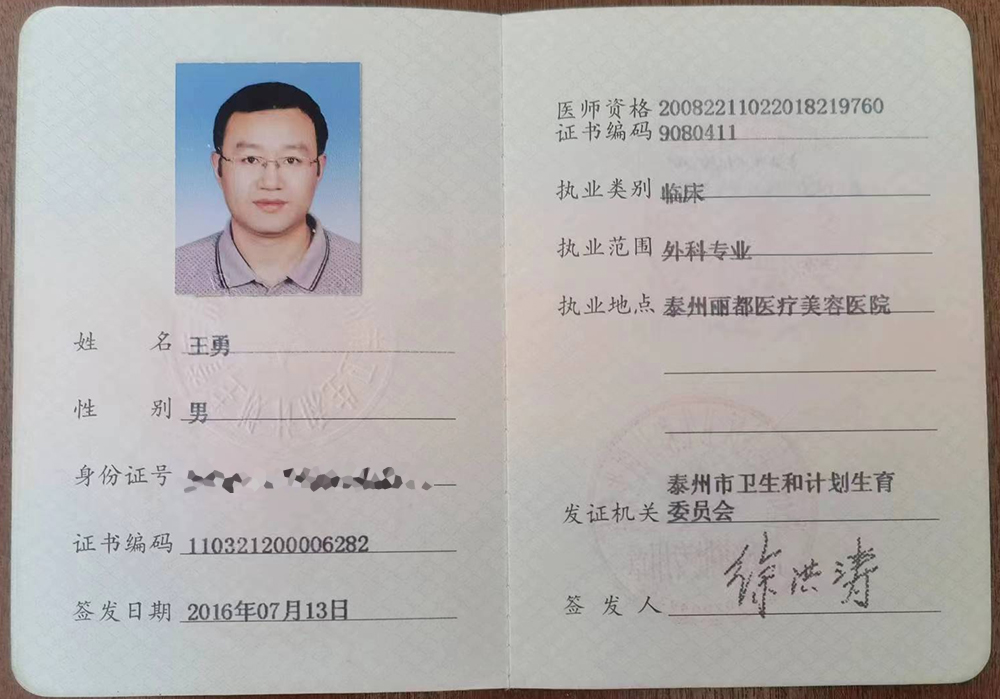 姓名 王勇
性别 男
身份证号
证书编码 110321200006282
签发日期 2016年07月13日
医师资格 20082211022018219760
证书编码 9080411
执业类别 临床
执业范围 外科专业
执业地点 泰州丽都医疗美容医院
泰州市卫生和计划生育
发证机关 委员会
签发人 徐洪涛